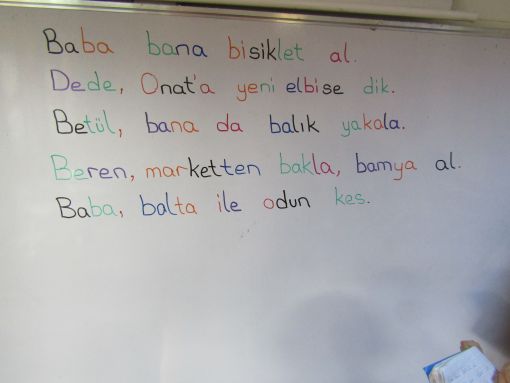 Baba bana bisiklet al.
Dede, Onat'a yeni elbise dik.
Betül, bana da balık yakala.
Beren, marketten bakla, bamya al.
Baba, balta ile odun kes.